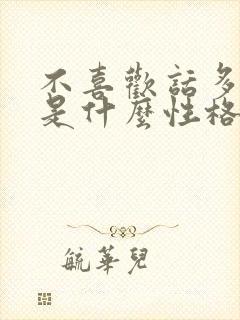 不喜歡話多
是什麼性格
毓華兒